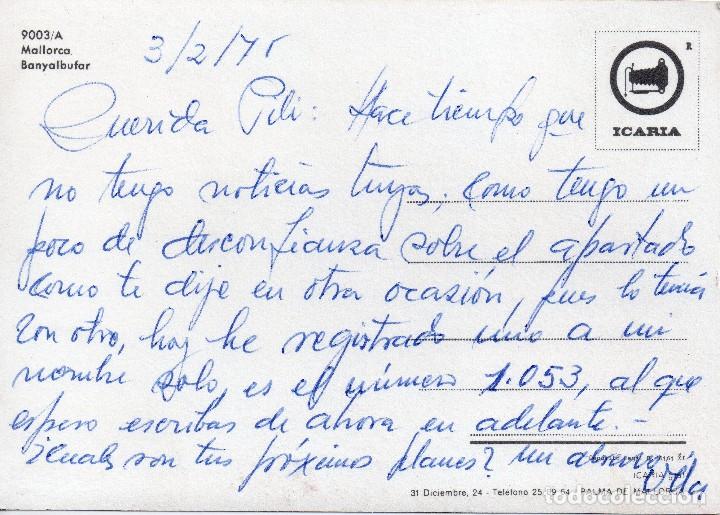 9003/A
Mallorca
Banyalbufar
3/2/75
R
ICARIA
Querida Pili: Hace tiempo que
no tengo noticias tuyas, como tengo un
poco de desconfianza sobre el apartado
como te dije en otra ocasión, pues lo tenía
con otro, hoy he registrado uno a mi
nombre solo, es el número 1.053, al que
espero escribas de ahora en adelante.-
¿Cuales son tus próximos planes? Un abrazo
ICARIA
31 Diciembre, 24 - Teléfono 25 09 64 - PALMA DE MALLORCA
todocoleccion